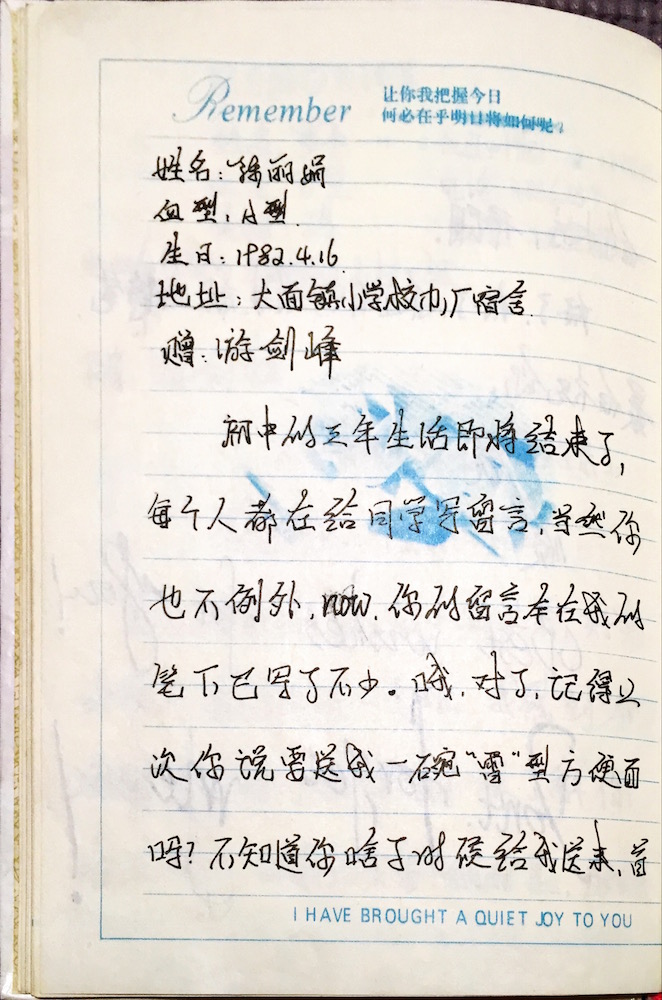 Remember
让你我把握今日
何必在乎明日将如何呢。
姓名:徐丽娟
血型:小型.
生日:1982.4.16
地址:大面镇小学校巾厂宿舍
赠:游剑峰
初中的三年生活即将结束了,
每个人都在给同学写留言,当然你
也不例外,now,你的留言本在我的
笔下已写了不少。哦,对了,记得上
次你说要送我一碗“雷”型方便面
呀?不知道你啥子时候给我送来,首
I HAVE BROUGHT A QUIET JOY TO YOU